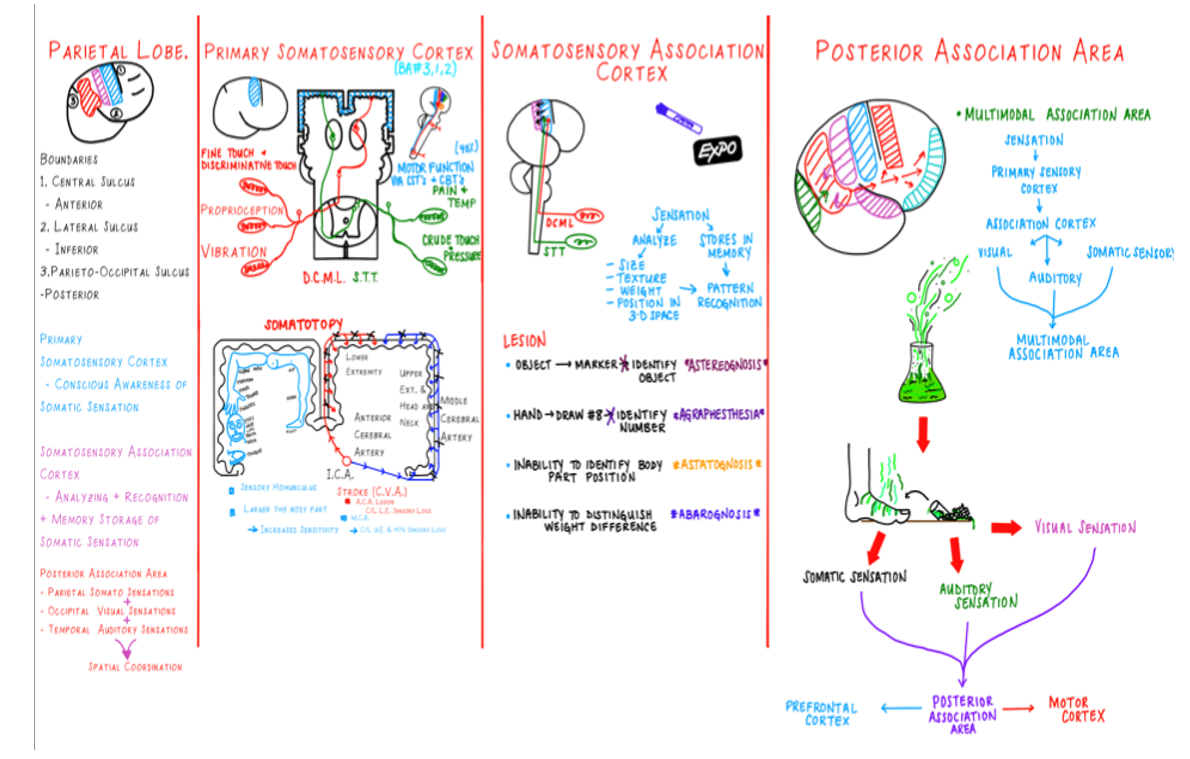 PARIETAL LOBE.
1
2
3
BOUNDARIES
1. CENTRAL SULCUS
- ANTERIOR
2. LATERAL SULCUS
- INFERIOR
3.PARIETO-OCCIPITAL SULCUS
-POSTERIOR
PRIMARY
SOMATOSENSORY CORTEX
- CONSCIOUS AWARENESS OF
SOMATIC SENSATION
SOMATOSENSORY ASSOCIATION
CORTEX
- ANALYZING + RECOGNITION
+ MEMORY STORAGE OF
SOMATIC SENSATION
POSTERIOR ASSOCIATION AREA
- PARIETAL SOMATO SENSATIONS
+
- OCCIPITAL VISUAL SENSATIONS
+
- TEMPORAL AUDITORY SENSATIONS
SPATIAL COORDINATION
PRIMARY SOMATOSENSORY CORTEX
(BA#3,1,2)
FINE TOUCH +
DISCRIMINATIVE TOUCH
PROPRIOCEPTION
VIBRATION
(40%)
MOTOR FUNCTION
VIA CST'S + CBT'S
PAIN +
TEMP
CRUDE TOUCH
+ PRESSURE
D.C.M.L. S.T.T.
SOMATOTOPY
LOWER
EXTREMITY
UPPER
EXT. &
HEAD AND
NECK
ANTERIOR
CEREBRAL
ARTERY
MIDDLE
CEREBRAL
ARTERY
I.C.A.
SENSORY HOMUNCULUS
LARGER THE BODY PART
→ INCREASED SENSITIVITY
STROKE (C.V.A.)
A.C.A. LESION
C/L L.E. SENSORY LOSS
M.C.A.
→ C/L U.E. & H/N SENSORY LOSS
SOMATOSENSORY ASSOCIATION
CORTEX
EXPO
DCML
STT
SENSATION
ANALYZE
- SIZE
- TEXTURE
- WEIGHT
- POSITION IN
3-D SPACE
STORES IN
MEMORY
→ PATTERN
RECOGNITION
LESION
• OBJECT → MARKER IDENTIFY *ASTEREOGNOSIS*
OBJECT
• HAND → DRAW #8 IDENTIFY *AGRAPHESTHESIA*
NUMBER
• INABILITY TO IDENTIFY BODY *ASTATOGNOSIS*
PART POSITION
• INABILITY TO DISTINGUISH *ABAROGNOSIS*
WEIGHT DIFFERENCE
POSTERIOR ASSOCIATION AREA
• MULTIMODAL ASSOCIATION AREA
SENSATION
PRIMARY SENSORY
CORTEX
ASSOCIATION CORTEX
VISUAL
AUDITORY
SOMATIC SENSORY
MULTIMODAL
ASSOCIATION AREA
VISUAL SENSATION
SOMATIC SENSATION
AUDITORY
SENSATION
PREFRONTAL
CORTEX
POSTERIOR
ASSOCIATION
AREA
MOTOR
CORTEX